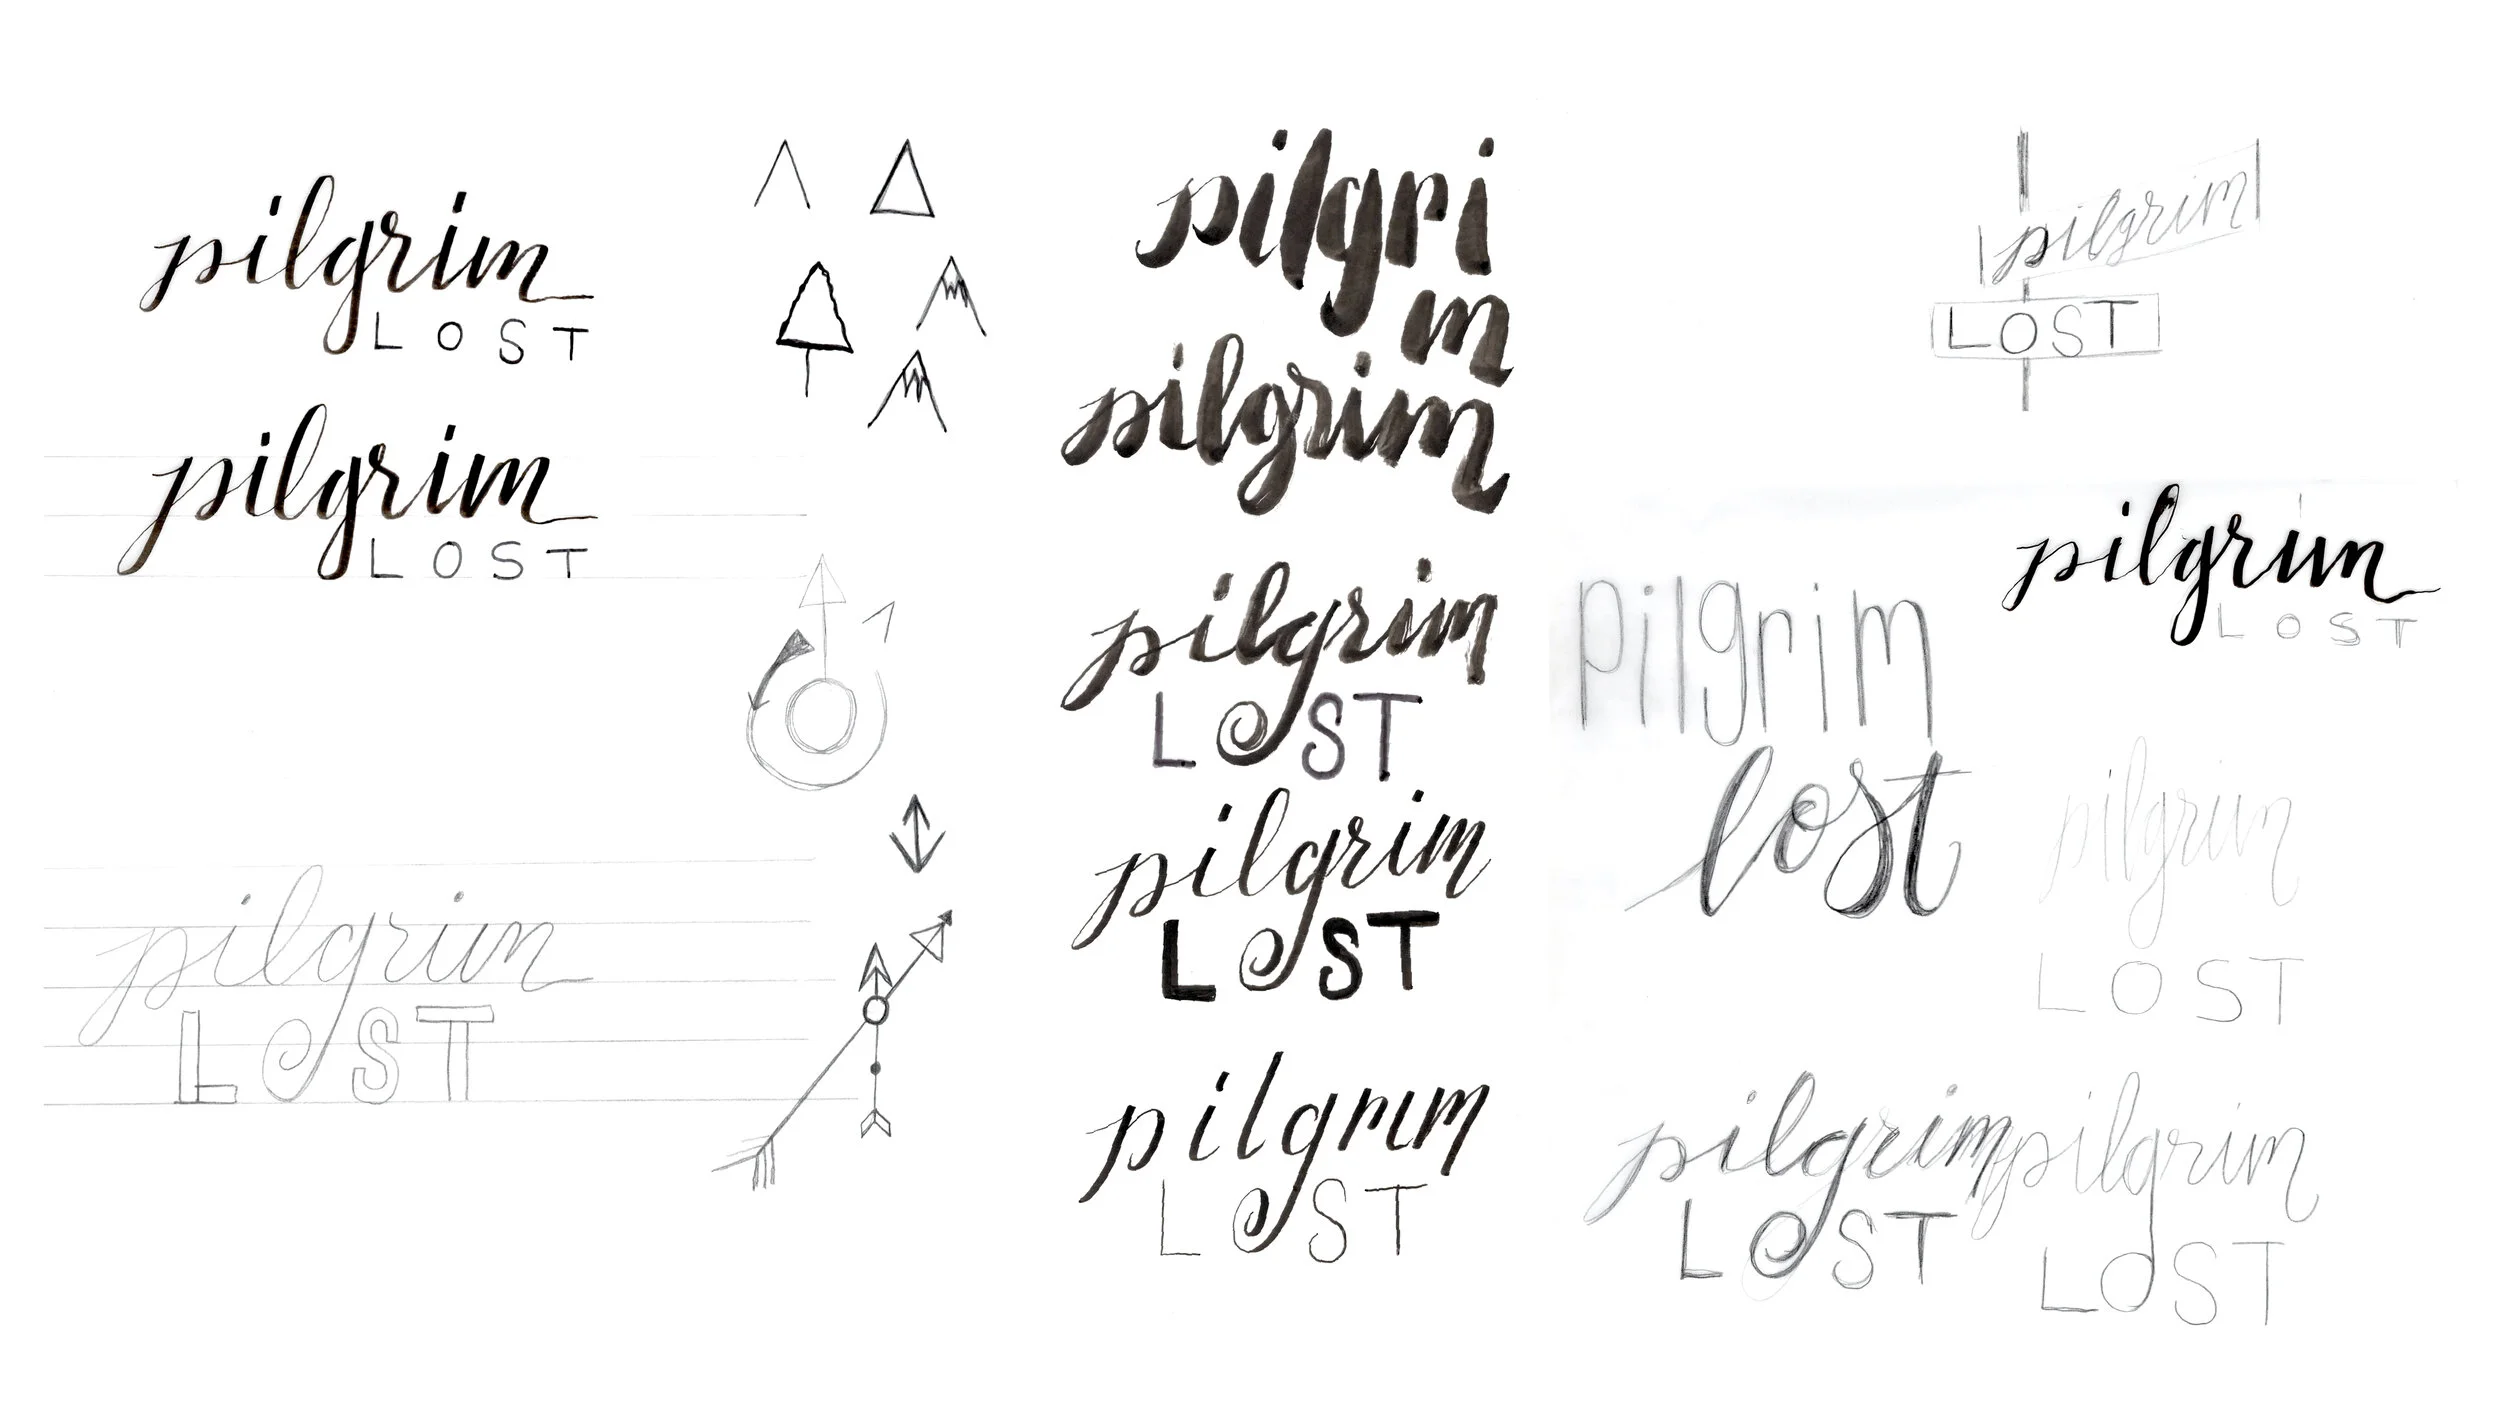 pilgrim
LOST
pilgrim
LOST
pilgrim
LOST
pilgri
m
pilgrim
pilgrim
LOST
pilgrim
LOST
pilgrim
LOST
pilgrim
LOST
pilgrim
LOST
pilgrim
lost
pilgrim
LOST
pilgrim
LOST
pilgrim
LOST